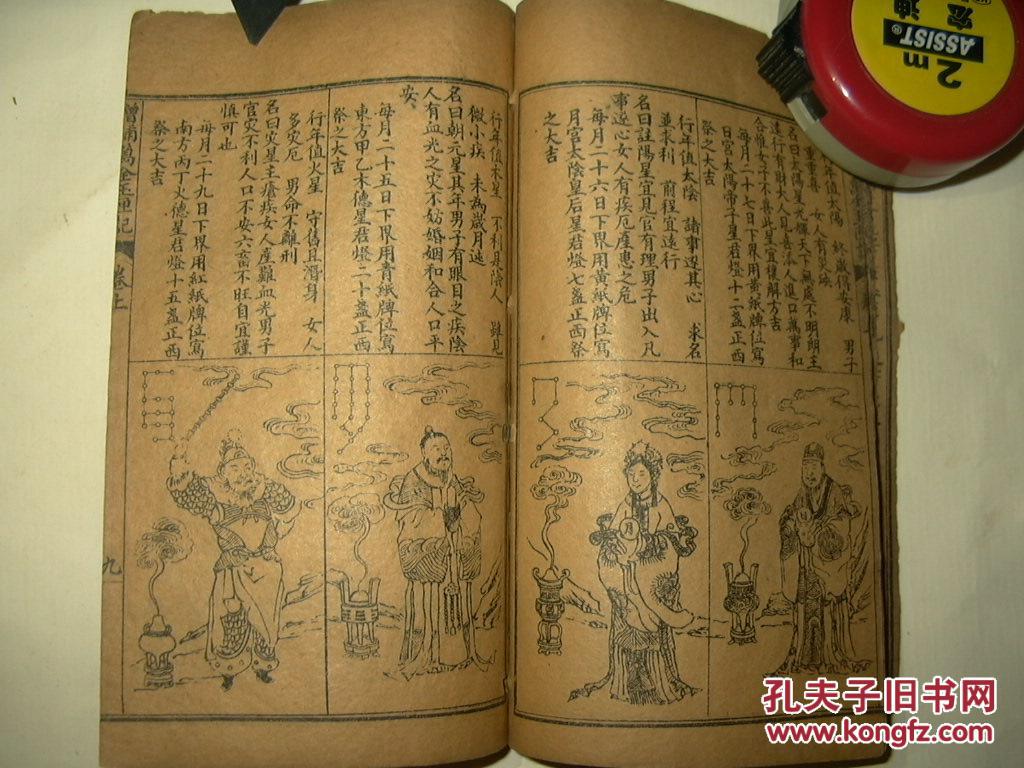 行年值太陽 終歲得安康 男子
重重喜 女人有災殃
名曰太陽星光耀天下無處不明朗主
遠行有財大人見喜添人進口萬事和
合惟女子不喜此星宜禳解方吉
每月二十七日下界用黃紙牌位寫
日宮太陽帝子星君燈十二盞正西
祭之大吉
行年值太陰 諸事遂其心 求名
並求利 前程宜遠行
名曰註陽星宜見官有理男子出入凡
事遂心女人有疾厄產惠之危
每月二十六日下界用黃紙牌位寫
月宮太陰皇后星君燈七盞正西祭
之大吉
行年值木星 不利見陰人 雖見
微小疾 未為歲月迍
名曰朝元星其年男子有眼目之疾陰
人有血光之災不妨婚姻和合人口平
安
每月二十五日下界用青紙牌位寫
東方甲乙木德星君燈二十盞正西
祭之大吉
行年值火星 守舊且潛身 女人
多災厄 男命不離刑
名曰災星主瘡疾女人產難血光男子
官災不利人口不安六畜不旺自宜謹
慎可也
每月二十九日下界用紅紙牌位寫
南方丙丁火德星君燈十五盞正西
祭之大吉
增補萬全玉匣記
卷上
九
月
2m
ASSIST
宏迪
孔夫子旧书网
www.kongfz.com